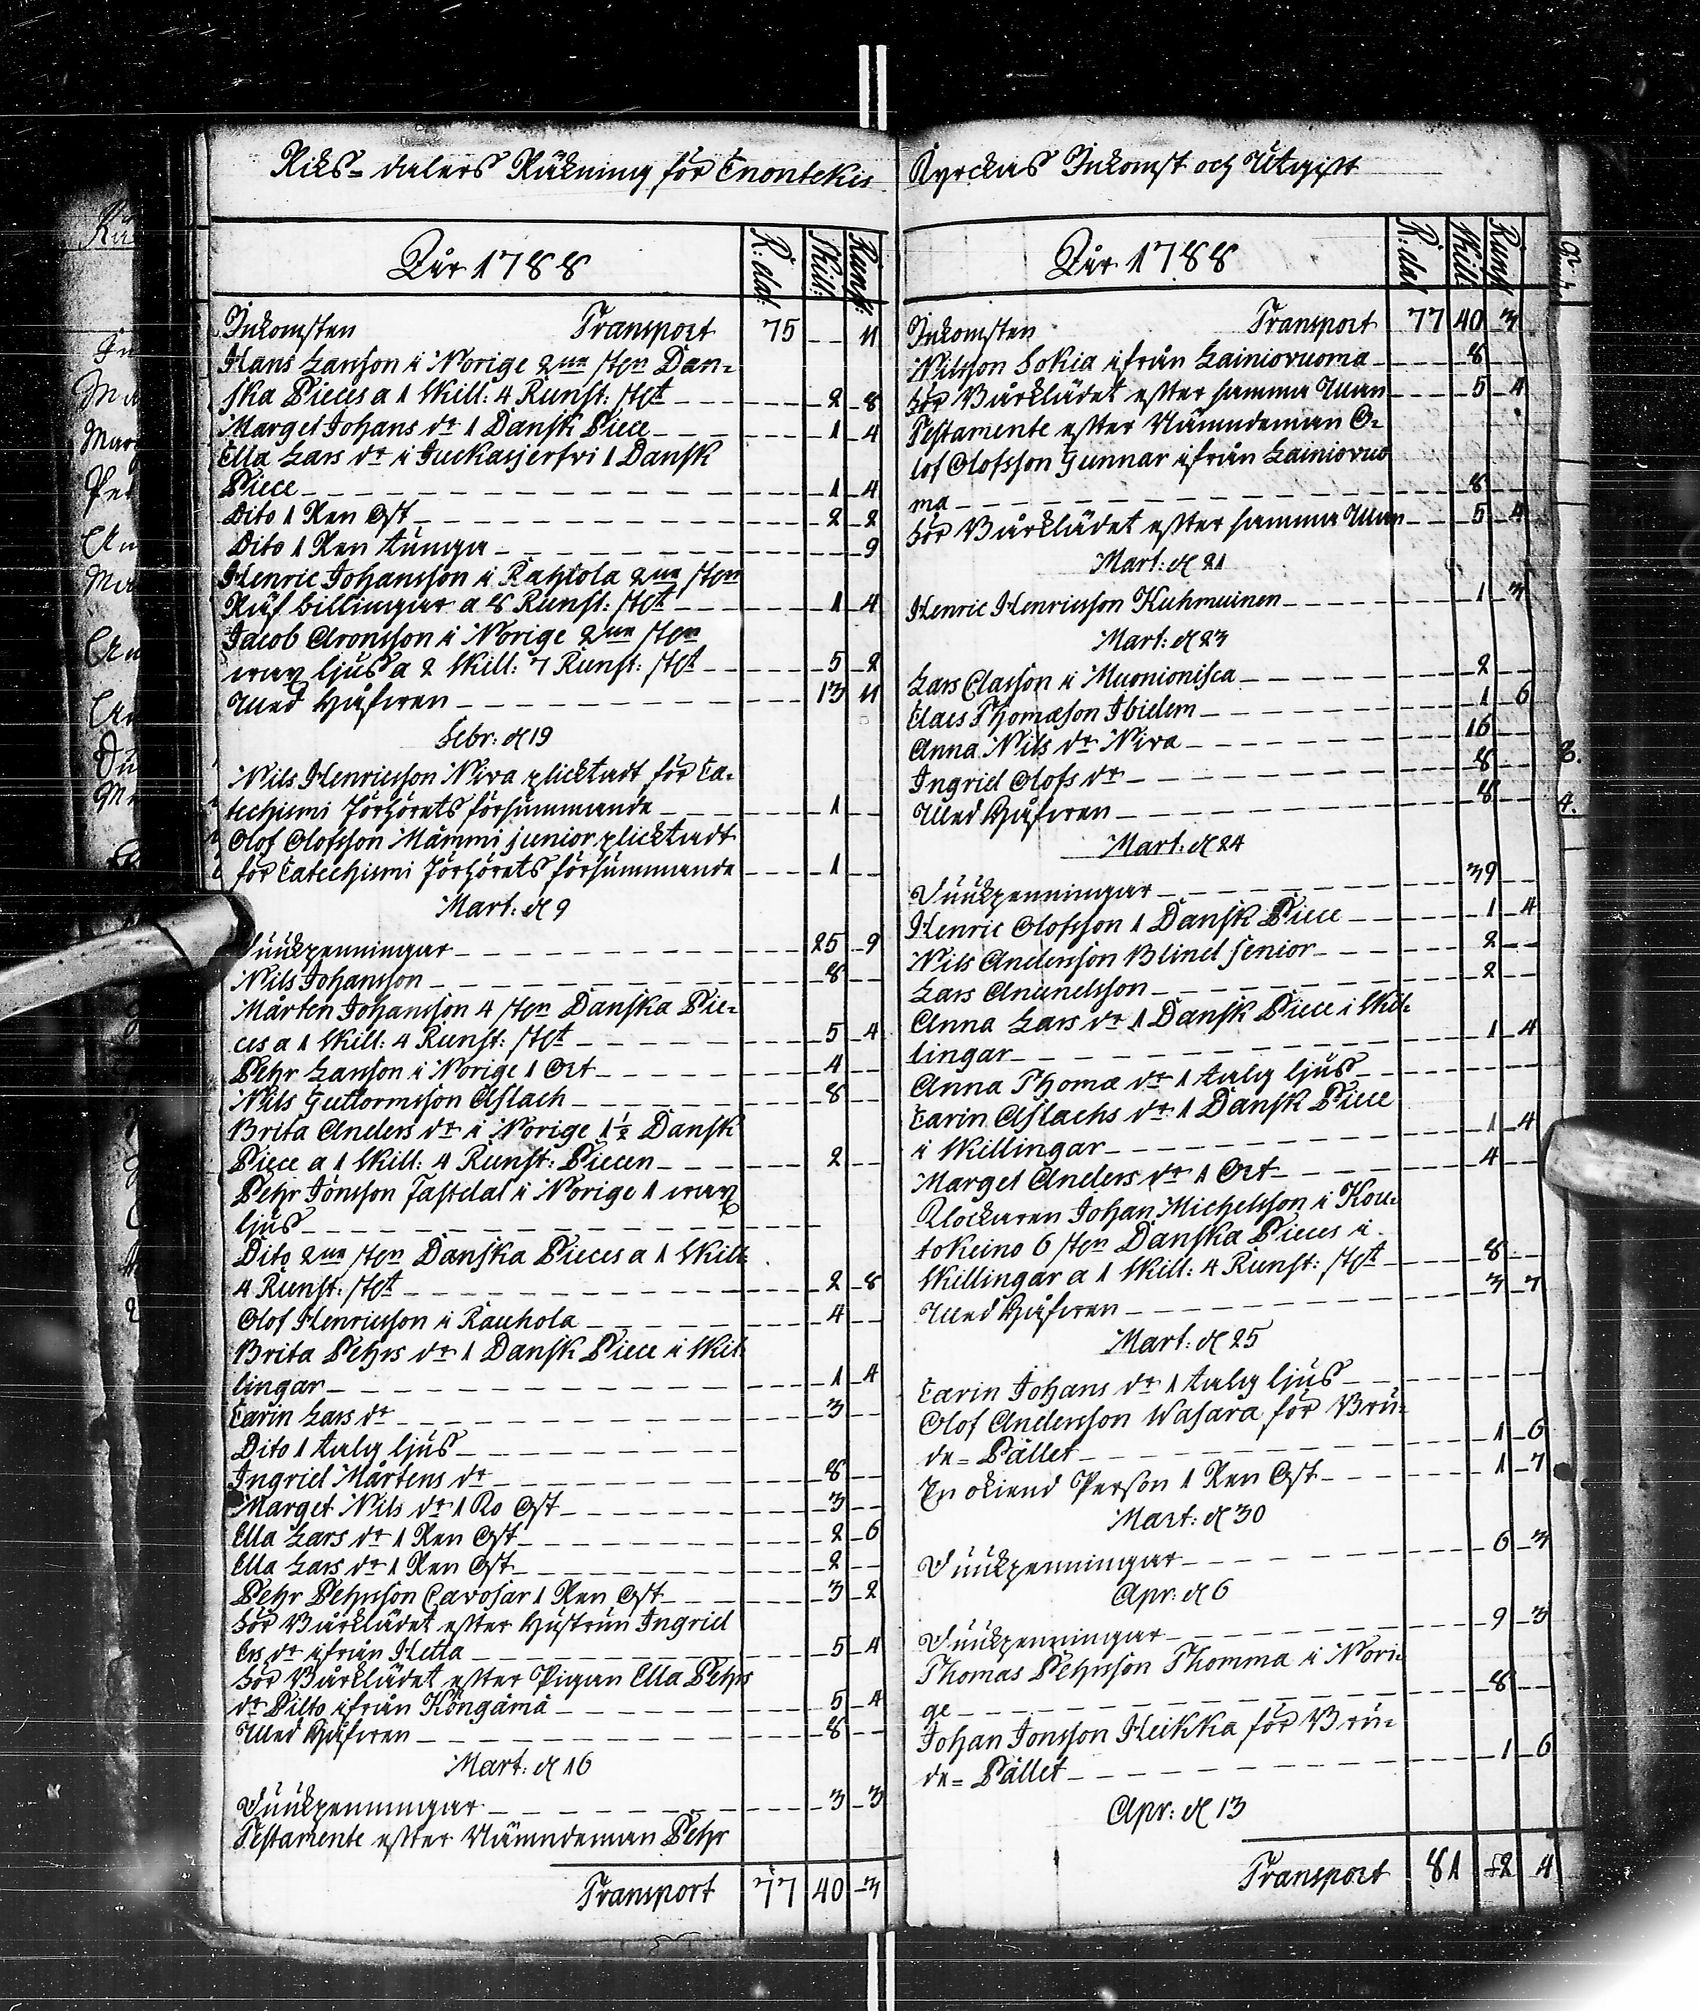 Riks-dalers Räkning för Enontekis
År 1788 R:dal: Skill: Runst:
Inkomsten Transport 75 - - 11
Hans Larsson i Norige 2ne st:n Dan-
ska Pieces a 1 Skill: 4 Runst: st:t 2 8
Marget Johans dr 1 Dansk Piece 1 4
Ella Lars dr i Juckasjerfvi 1 Dansk
Piece 1 4
Dito 1 Ren Ost 2 2
Dito 1 Ren tunga 9
Henric Johansson i Rahtola 2ne st:n
Räf billingar a 8 Runst: st:t 1 4
Jacob Aronsson i Norige 2ne st:n
wax ljus a 2 Skill: 7 Runst: st:t 5 2
Med Håfwen 13 11
Febr: d 19
Nils Henricsson Niva plicktadt för Ca-
techismi Förhörets försummande 1
Olof Olofsson Mämmi junior plicktadt
för Catechismi Förhörets försummande 1
Mart: d 9
Siukpenningar 25 9
Nils Johansson 8
Mårten Johansson 4 st:n Danska Pie-
ces a 1 Skill: 4 Runst: st:t 5 4
Pehr Larsson i Norige 1 Ort 4
Nils Guttormsson Aslach 8
Brita Anders dr i Norige 1½ Dansk
Piece a 1 Skill: 4 Runst: Piecen 2
Pehr Jönsson Fastdal i Norige 1 wax
ljus
Dito 2ne st:n Danska Pieces a 1 Skill:
4 Runst: st:t 2 8
Olof Henricsson i Rauhola 4
Brita Pehrs dr 1 Dansk Piece i Skil-
lingar 1 4
Carin Lars dr 3
Dito 1 talg ljus
Ingrid Mårtens dr 8
Marget Nils dr 1 Ko Ost 3
Ella Lars dr 1 Ren Ost 2 6
Ella Lars dr 1 Ren Ost 2
Pehr Pehrsson Cavosar 1 Ren Ost 3 2
För Bårklädet efter Hustrun Ingrid
dr ifrån Hetta 5 4
För Bårklädet efter Pigan Ella Pehrs
dr Pilto ifrån Köngämä 5 4
Med Håfwen 8
Mart: d 16
Siukpenningar 3 3
Testamente efter Nämndeman Pehr
Transport 77 40 3
Kyrckas Inkomst och Utgift
År 1788 R:dal Skill: Runst
Inkomsten Transport 77 40 3
Nilsson Sokia ifrån Lainiovuoma 8
För Bårklädet efter samma Man 5 4
Testamente efter Nämndeman O-
lof Olofsson Gunnar ifrån Lainiovuo
ma 8
För Bårklädet efter samma Man 5 4
Mart: d 21
Henric Henricsson Kuhmuinen 1 3
Mart: d 23
Lars Classon i Muonionisca 2
Claes Thomæson Ibidem 1 6
Anna Nils dr Niva 16
Ingrid Olofs dr 8
Med Håfwen 8
Mart: d 24
Siukpenningar 39
Henric Olofsson 1 Dansk Piece 1 4
Nils Andersson Blind Senior 2
Lars Anundsson 2
Anna Lars dr 1 Dansk Piece i Skil-
lingar 1 4
Anna Thomæ dr 1 talg ljus
Carin Aslachs dr 1 Dansk Piece
i Skillingar 1 4
Marget Anders dr 1 Ort 4
Klockaren Johan Michelsson i Kou-
tokeino 6 st:n Danska Pieces i
Skillingar a 1 Skill: 4 Runst: st:t 8
Med Håfwen 3 7
Mart: d 25
Carin Johans dr 1 talg ljus
Olof Andersson Wasara för Bru-
de-Pället 1 6
En okiend Person 1 Ren Ost 1 7
Mart: d 30
Siukpenningar 6 3
Apr: d 6
Siukpenningar 9 3
Thomas Pehrsson Thomma i Nori-
ge 8
Johan Jonsson Heikka för Bru-
de-Pället 1 6
Apr: d 13
Transport 81 2 4